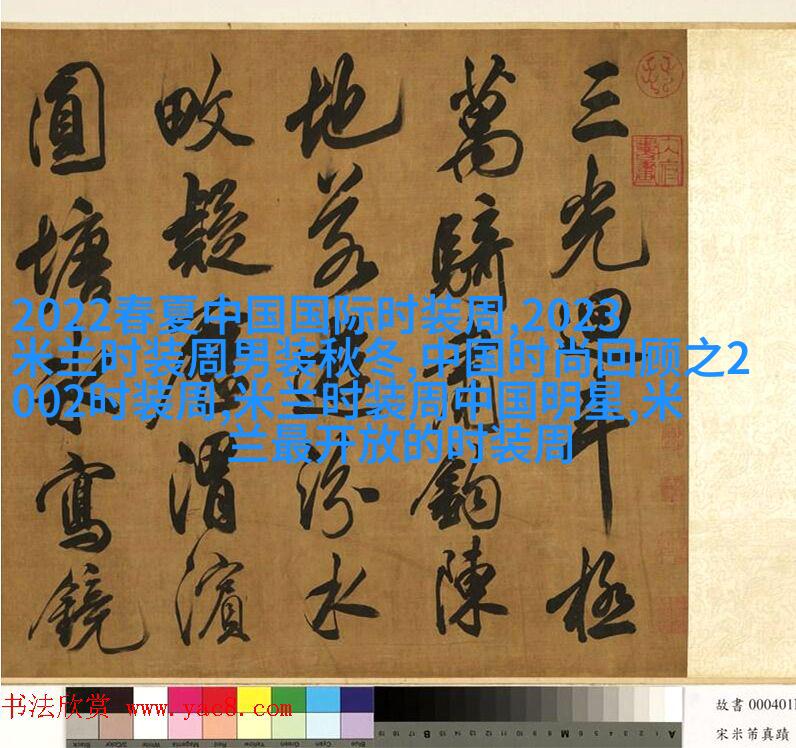 三光回斗極
萬騎肅鈎陳
地若遊汾水
畋疑歷渭濱
圓塘冰寫鏡
2022春夏中国国际时装周,2023
米兰时装周男装秋冬,中国时尚回顾之2
002时装周,米兰时装周中国明星,米
兰最开放的时装周
书法欣赏 www.yac8.com
故書 000401
宋米芾真蹟